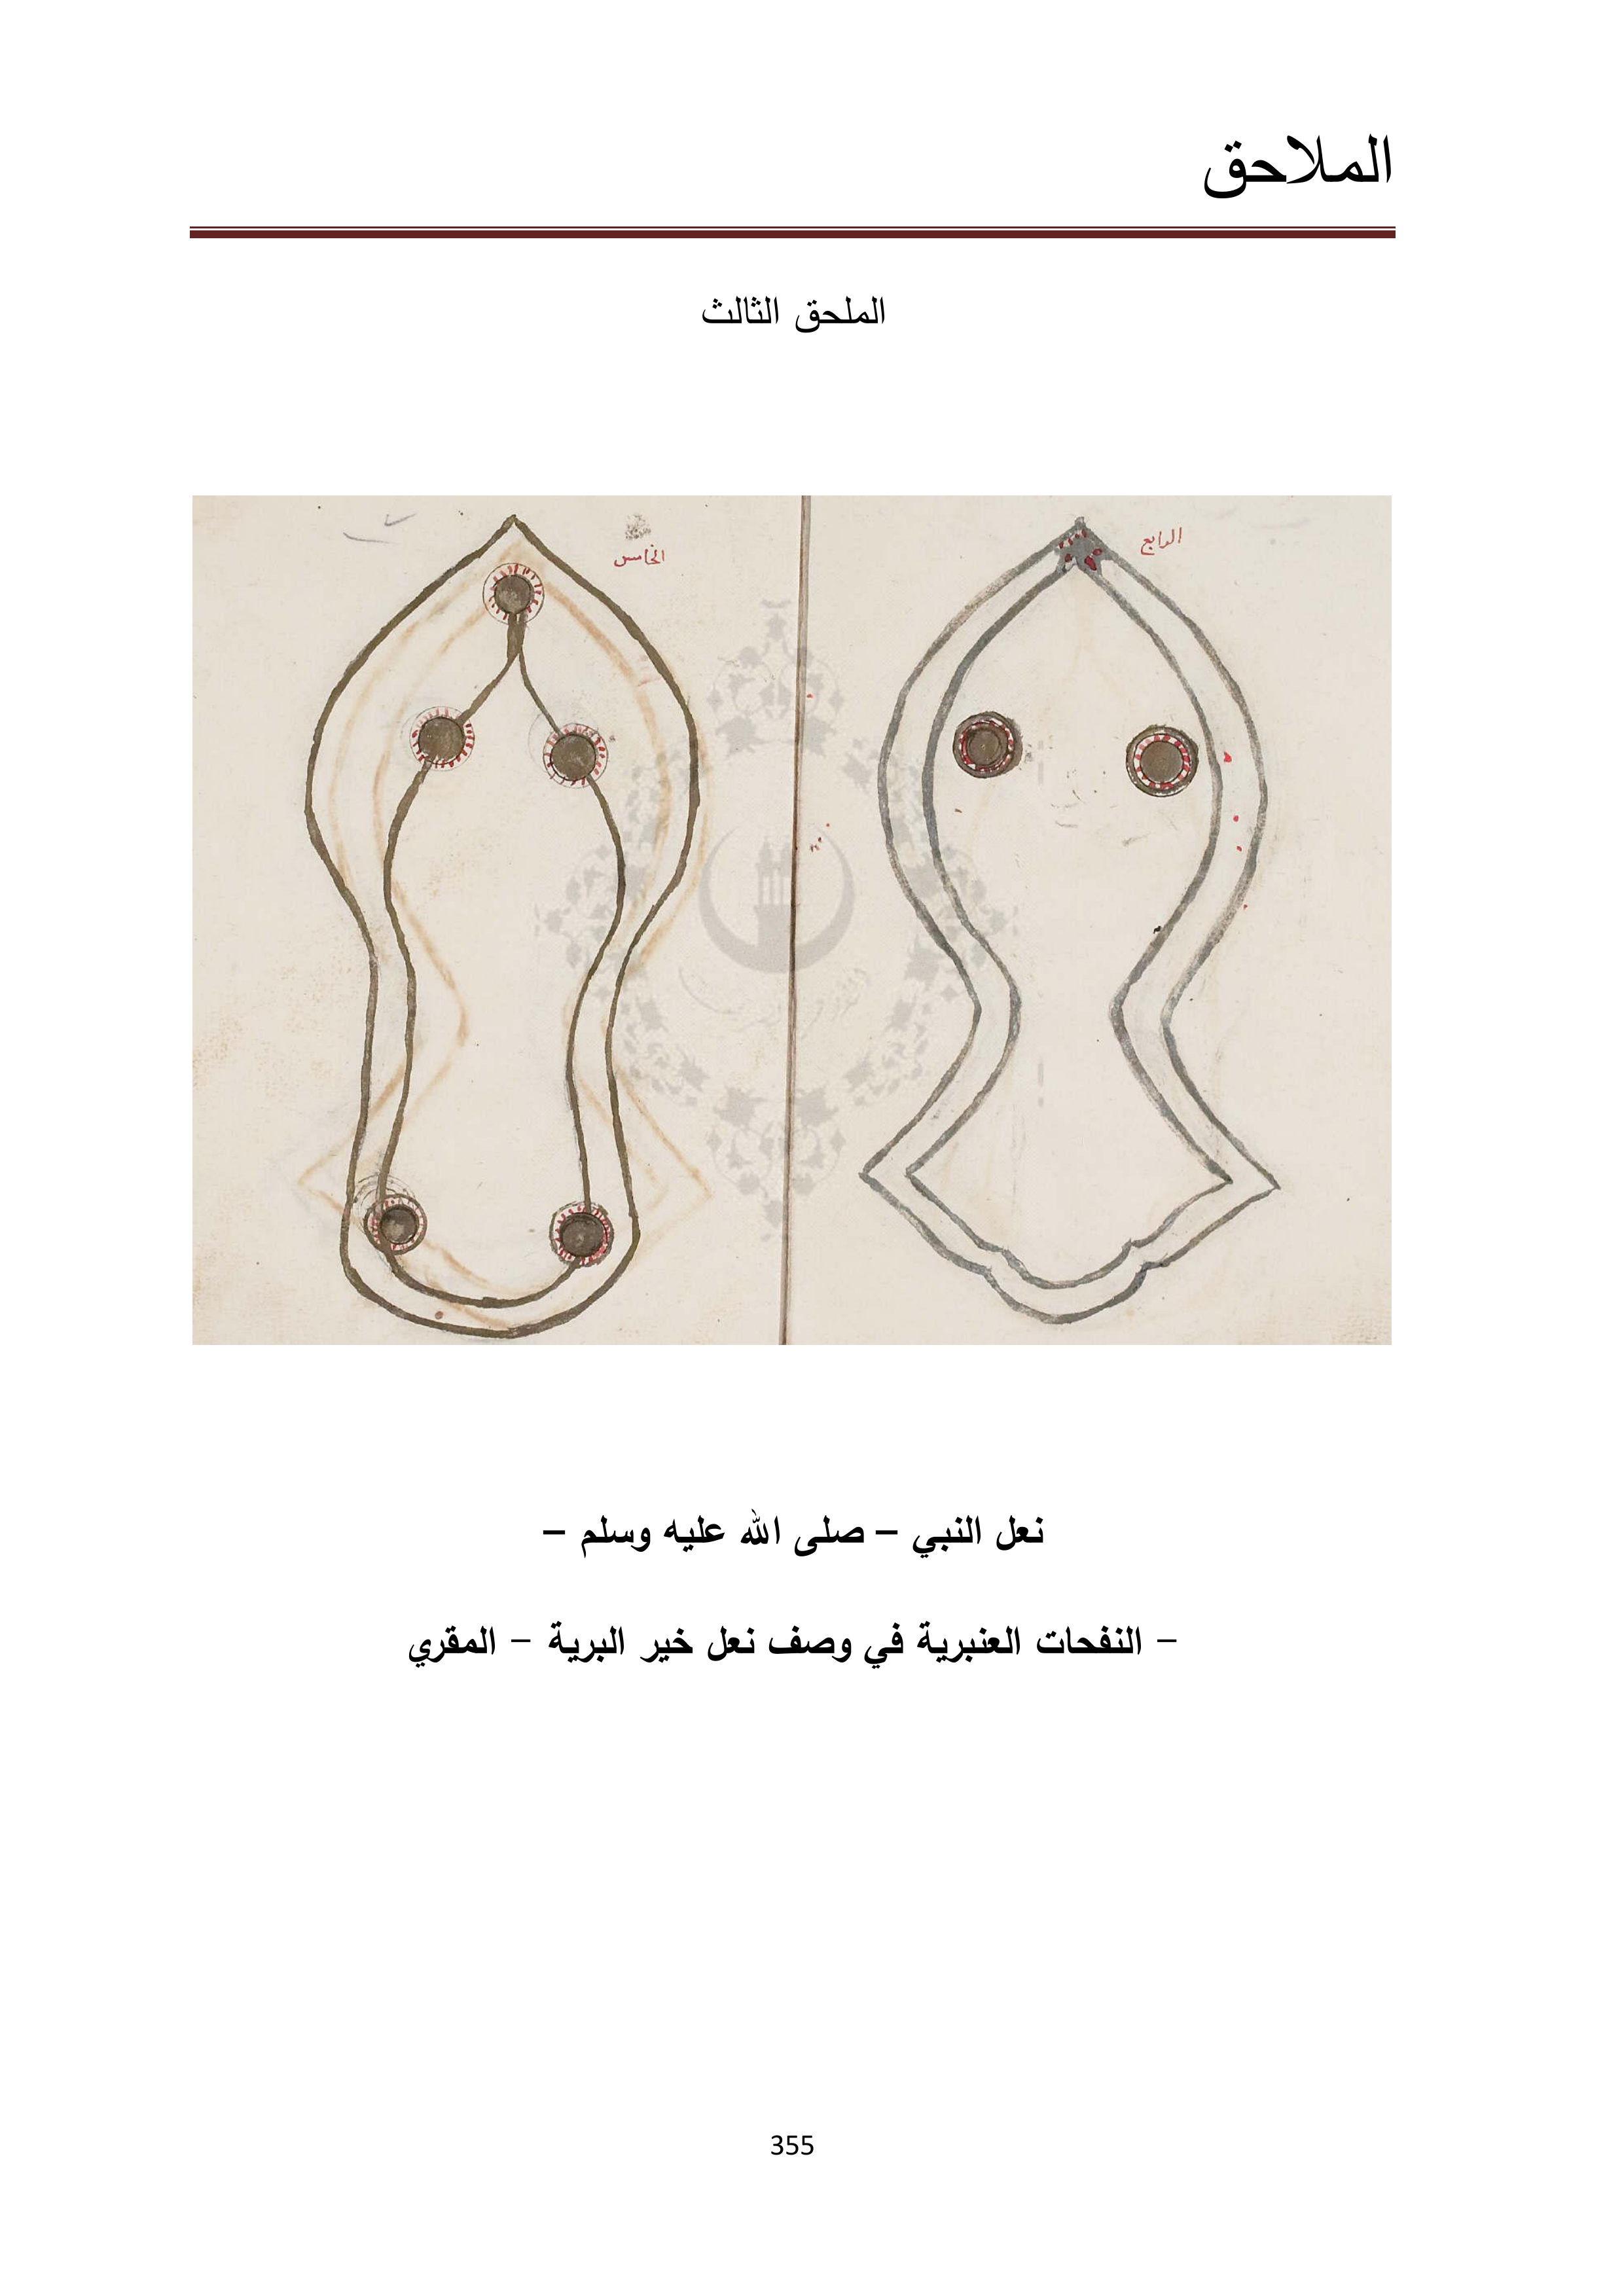 الملاحق
الملحق الثالث
الرابع
الخامس
نعل النبي – صلى الله عليه وسلم –
– النفحات العنبرية في وصف نعل خير البرية – المقري
355